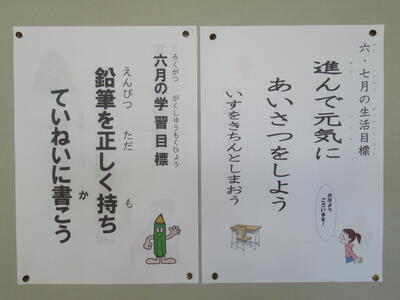 六・七月の生活目標
進んで元気に
あいさつをしよう
いすをきちんとしまおう
おはよう
ございます!
六月の学習目標
ろくがつ がくしゅうもくひょう
鉛筆を正しく持ち
えんぴつ ただ も
ていねいに書こう
か